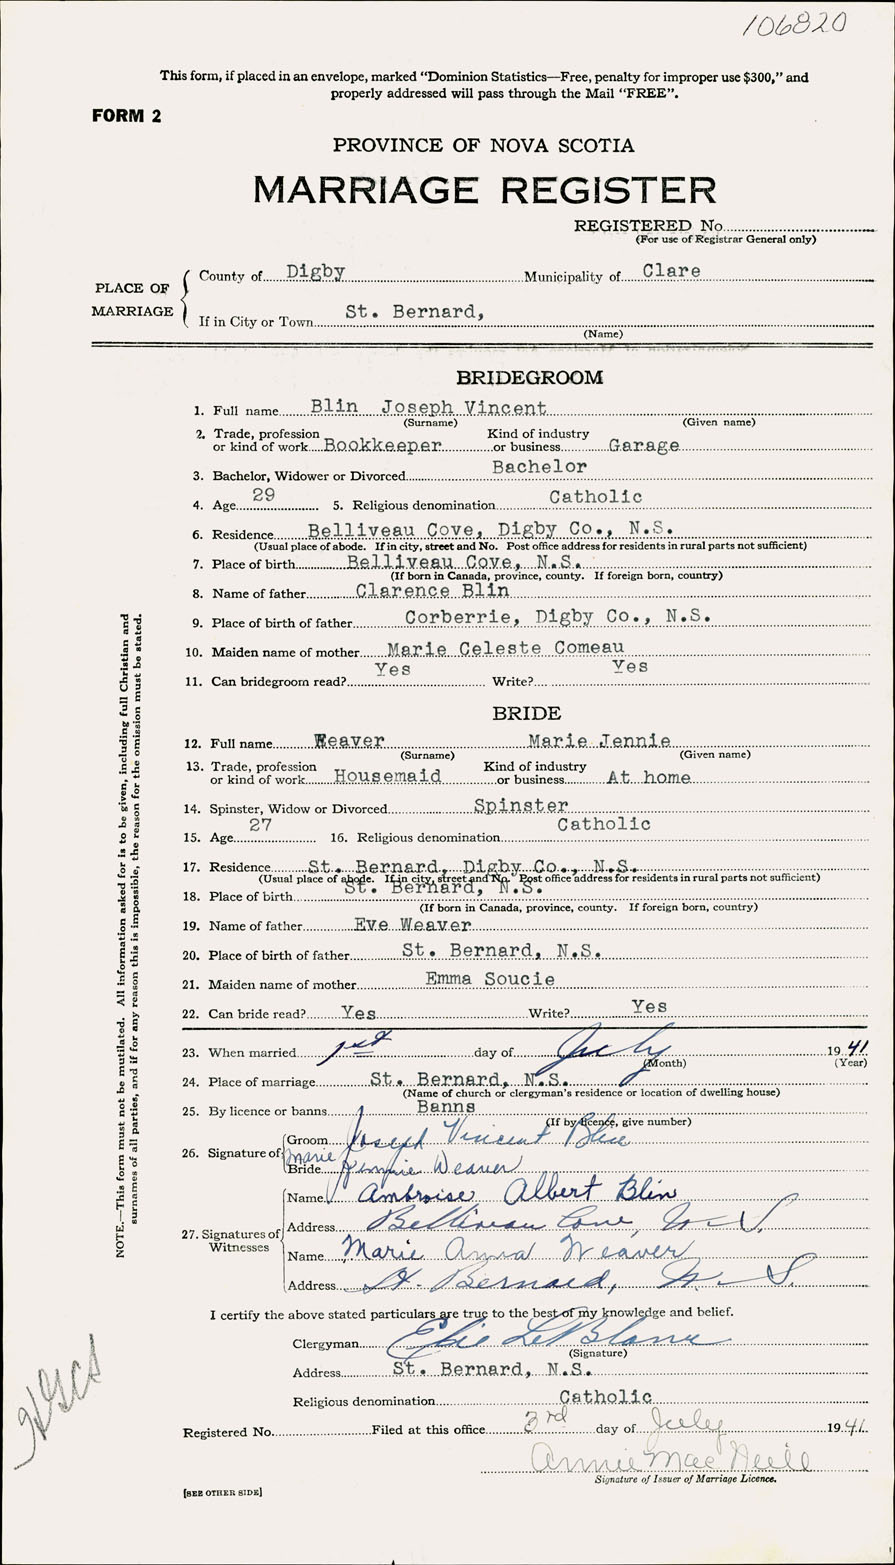 106820
This form, if placed in an envelope, marked “Dominion Statistics—Free, penalty for improper use $300,” and
properly addressed will pass through the Mail “FREE”.
FORM 2
PROVINCE OF NOVA SCOTIA
MARRIAGE REGISTER
REGISTERED No.
(For use of Registrar General only)
PLACE OF MARRIAGE
County of Digby Municipality of Clare
If in City or Town St. Bernard,
(Name)
BRIDEGROOM
1. Full name Blin Joseph Vincent
(Surname) (Given name)
2. Trade, profession or kind of work Bookkeeper Kind of industry or business Garage
3. Bachelor, Widower or Divorced Bachelor
4. Age 29 5. Religious denomination Catholic
6. Residence Belliveau Cove, Digby Co., N.S.
(Usual place of abode. If in city, street and No. Post office address for residents in rural parts not sufficient)
7. Place of birth Belliveau Cove, N.S.
(If born in Canada, province, county. If foreign born, country)
8. Name of father Clarence Blin
9. Place of birth of father Corberrie, Digby Co., N.S.
10. Maiden name of mother Marie Celeste Comeau
11. Can bridegroom read? Yes Write? Yes
BRIDE
12. Full name Weaver Marie Jennie
(Surname) (Given name)
13. Trade, profession or kind of work Housemaid Kind of industry or business At home
14. Spinster, Widow or Divorced Spinster
15. Age 27 16. Religious denomination Catholic
17. Residence St. Bernard, Digby Co., N.S.
(Usual place of abode. If in city, street and No. Post office address for residents in rural parts not sufficient)
18. Place of birth St. Bernard, N.S.
(If born in Canada, province, county. If foreign born, country)
19. Name of father Eve Weaver
20. Place of birth of father St. Bernard, N.S.
21. Maiden name of mother Emma Soucie
22. Can bride read? Yes Write? Yes
23. When married 1st day of July 1941
(Month) (Year)
24. Place of marriage St. Bernard, N.S.
(Name of church or clergyman's residence or location of dwelling house)
25. By licence or banns Banns
(If by licence, give number)
26. Signature of
Groom Joseph Vincent Blin
Bride Marie Jennie Weaver
27. Signatures of Witnesses
Name Ambroise Albert Blin
Address Belliveau Cove, N.S.
Name Marie Anna Weaver
Address St. Bernard, N.S.
I certify the above stated particulars are true to the best of my knowledge and belief.
Clergyman Elie LeBlanc
(Signature)
Address St. Bernard, N.S.
Religious denomination Catholic
Registered No. Filed at this office 3rd day of July 1941
Annie MacNeill
Signature of Issuer of Marriage Licence.
[SEE OTHER SIDE]
NOTE.—This form must not be mutilated. All information asked for is to be given, including full Christian and
surnames of all parties, and if for any reason this is impossible, the reason for the omission must be stated.